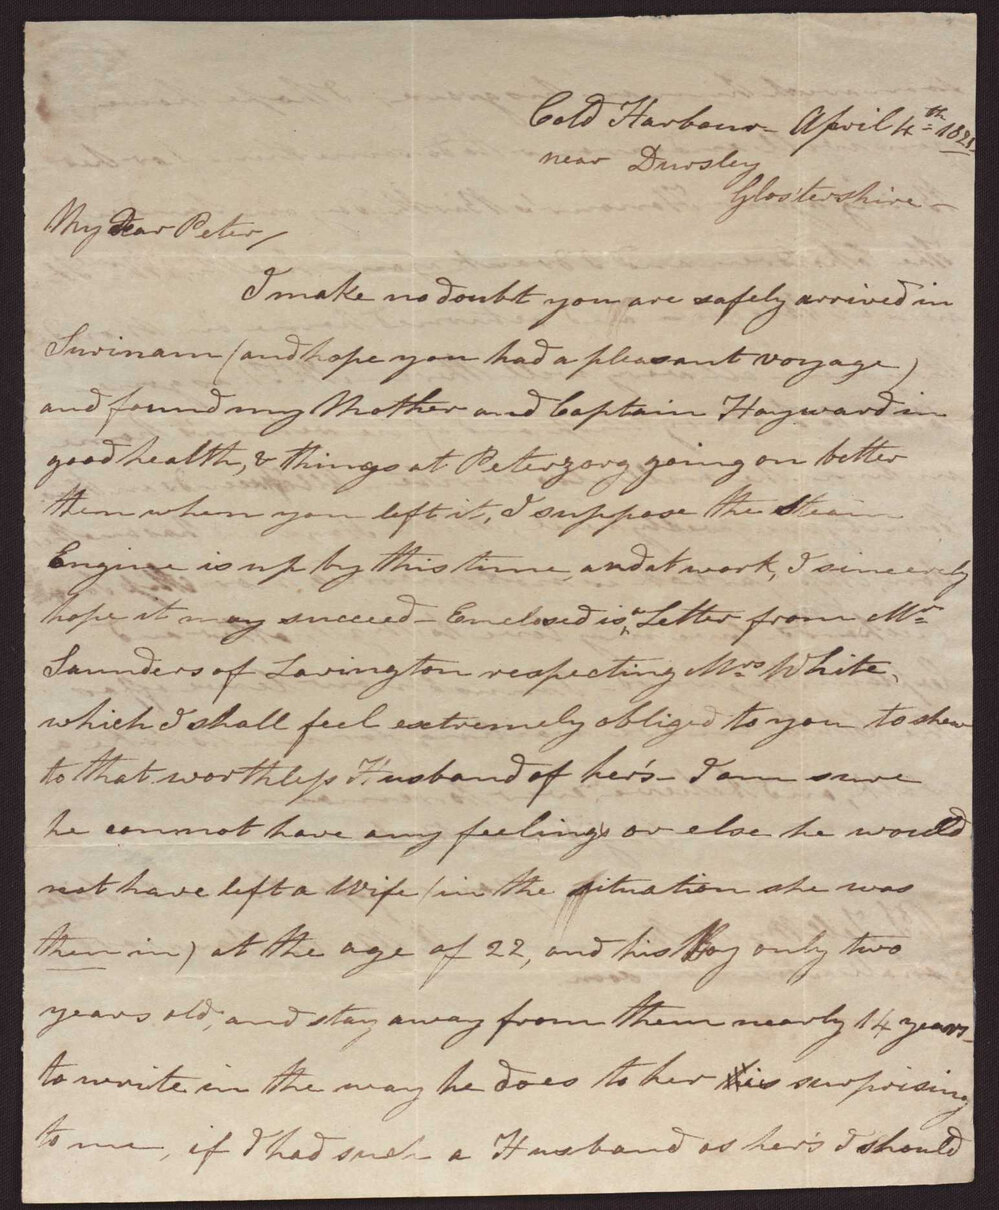 Cold Harbour April 4th 1821
near Dursley
Glos'tershire -
My Dear Peter,
I make no doubt you are safely arrived in
Surinam (and hope you had a pleasant voyage)
and found my Mother and Captain Hayward in
good health, & things at Peterzorg going on better
then when you left it, I suppose the Steam
Engine is up by this time, and at work, I sincerely
hope it may succeed - Enclosed is a Letter from Mr
Saunders of Lavington respecting Mrs White,
which I shall feel extremely obliged to you to shew
to that worthless Husband of her's - I am sure
he cannot have any feelings or else he would
not have left a Wife (in the situation she was
then in) at the age of 22, and his Boy only two
years old, and stay away from them nearly 14 years -
to write in the way he does to her is surprising
to me, if I had such a Husband as her's I should